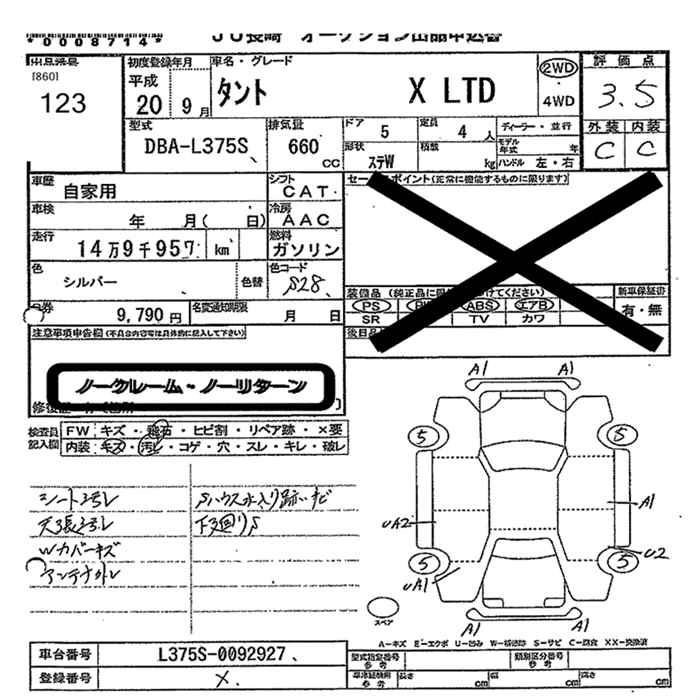 *0008714*
JU長崎 オークション出品申込書
[860]
123
初度登録年月
平成
20 9月
車名・グレード
タント X LTD
2WD
4WD
評価点
3.5
外装 内装
C C
型式
DBA-L375S
排気量
660
cc
ドア 5
定員 4 人
ディーラー・並行
形状 ステW
積載 kg
モデル年式 年
ハンドル 左・右
車歴
自家用
シフト
CAT
車検
年 月( 日)
冷房
AAC
走行
14万9千957 km
燃料
ガソリン
色
シルバー
色替
色コード
S28
9,790円
名変通知期限
月 日
セールスポイント(正常に機能するものに限ります)
PS
ABS エアB
SR TV カワ
新車保証書
有・無
注意事項申告欄(不具合内容等は具体的に記入して下さい)
ノークレーム・ノーリターン
検査員
記入欄
FW キズ・飛石・ヒビ割・リペア跡・×要
内装:キズ・汚レ・コゲ・穴・スレ・キレ・破レ
シートヨゴレ
天張ヨゴレ
Wカバーキズ
下廻りS
A1 A1
5 5
A1
UA2
5 5
U2
UA1
スペア
A1 A1
A-キズ E-エクボ U-凹み W-補修跡 S-サビ C-腐食 XX-交換済
車台番号
L375S-0092927
登録番号
X
型式指定番号
参考
類別区分番号
参考
長さ cm 幅 cm 高さ cm